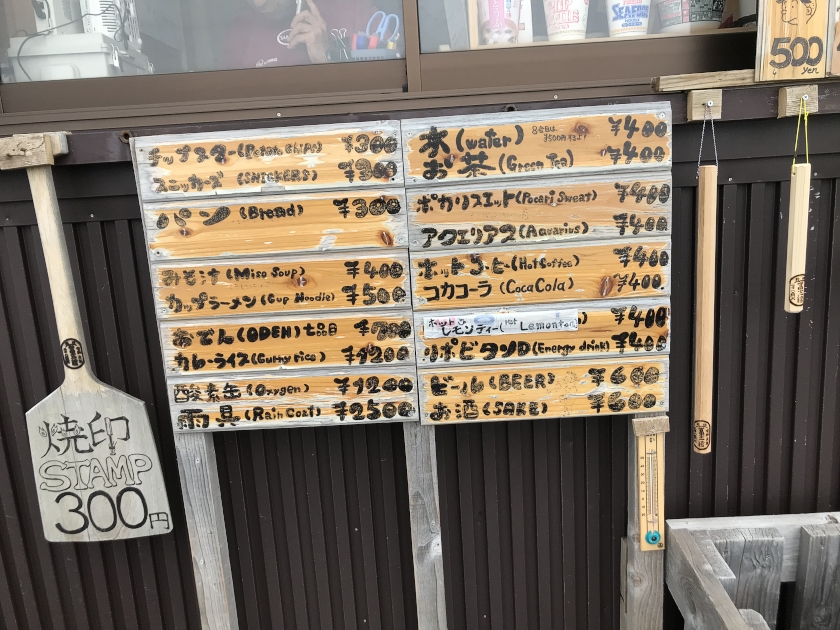 500
yen
チップスター (Potato Chips) ¥300
スニッカーズ (SNICKERS) ¥300
パン (Bread) ¥300
みそ汁 (Miso Soup) ¥400
カップラーメン (Cup Noodle) ¥500
おでん (ODEN) 七品目
カレーライス (Curry rice) ¥1200
酸素缶 (Oxygen) ¥1200
雨具 (Rain Coat) ¥2500
水 (water) ¥400
お茶 (Green Tea) ¥400
ポカリスエット (Pocari Sweat) ¥400
アクエリアス (Aquarius) ¥400
ホットコーヒー (Hot Coffee) ¥400
コカコーラ (Coca Cola) ¥400.
ホット
レモンティー (Hot Lemontea) ¥400
リポビタンD (Energy drink) ¥400
ビール (BEER) ¥600
お酒 (SAKE) ¥600
焼印
STAMP
300円